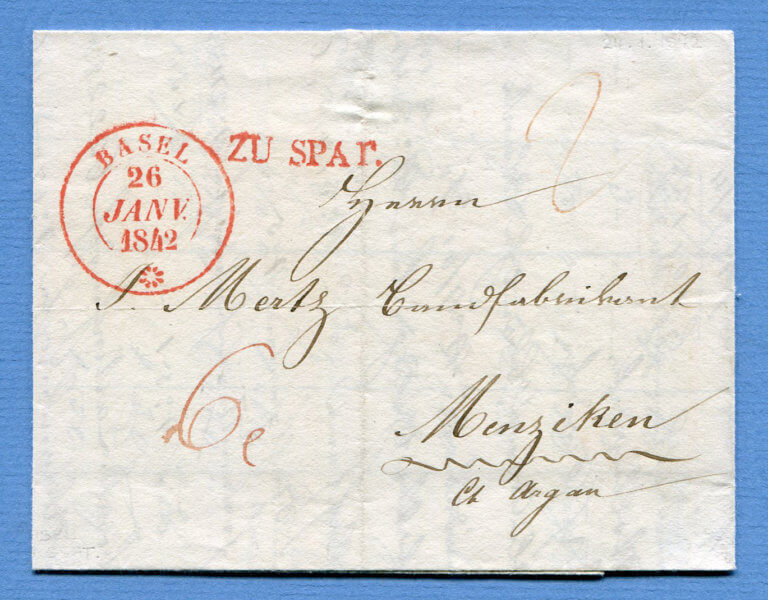 BASEL
26
JANV.
1842
ZU SPAT.
Herrn
J. Mertz Bandfabrikant
6c
Menziken
Ct Argau